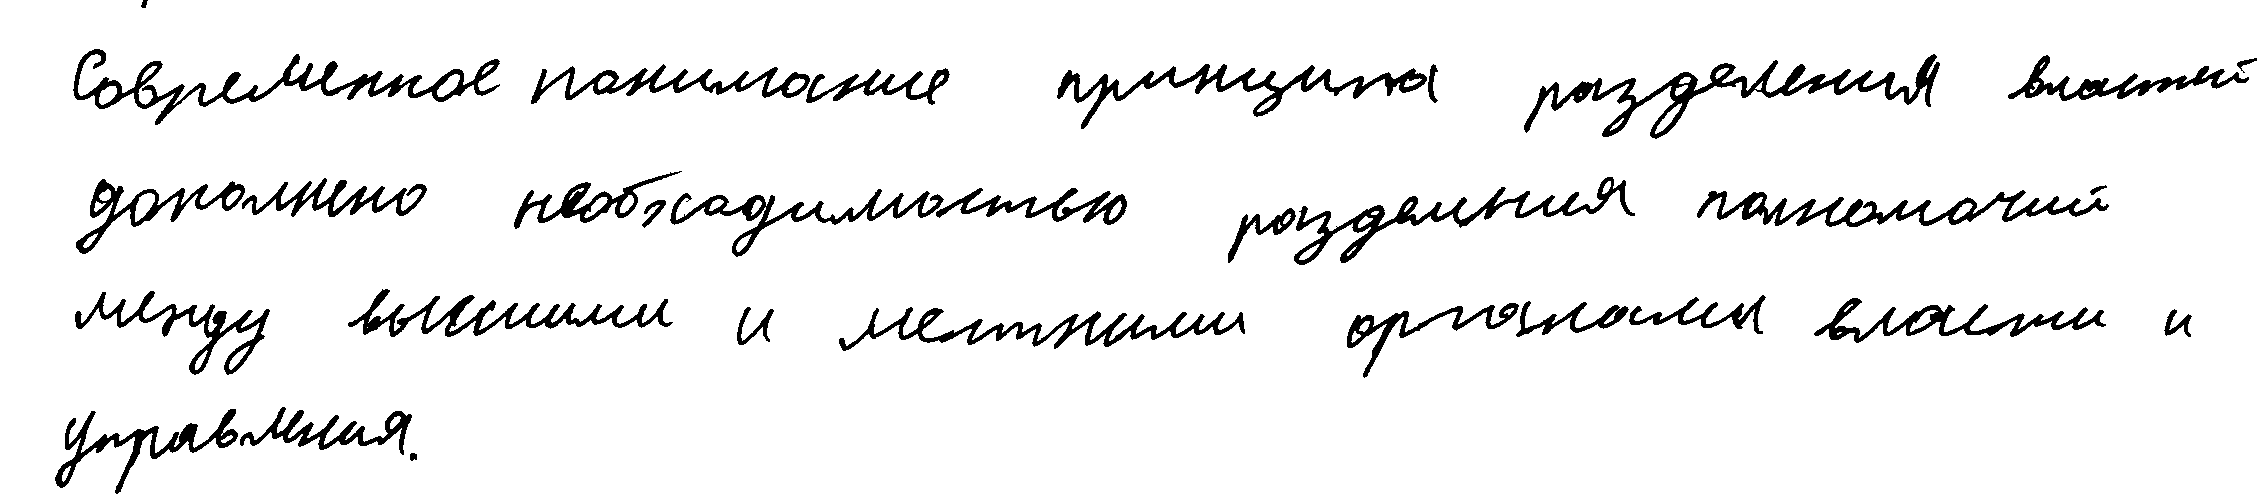 Современное понимание принципа разделения властей
дополнено необходимостью разделения полномочий
между высшими и местными органами власти и
управления.